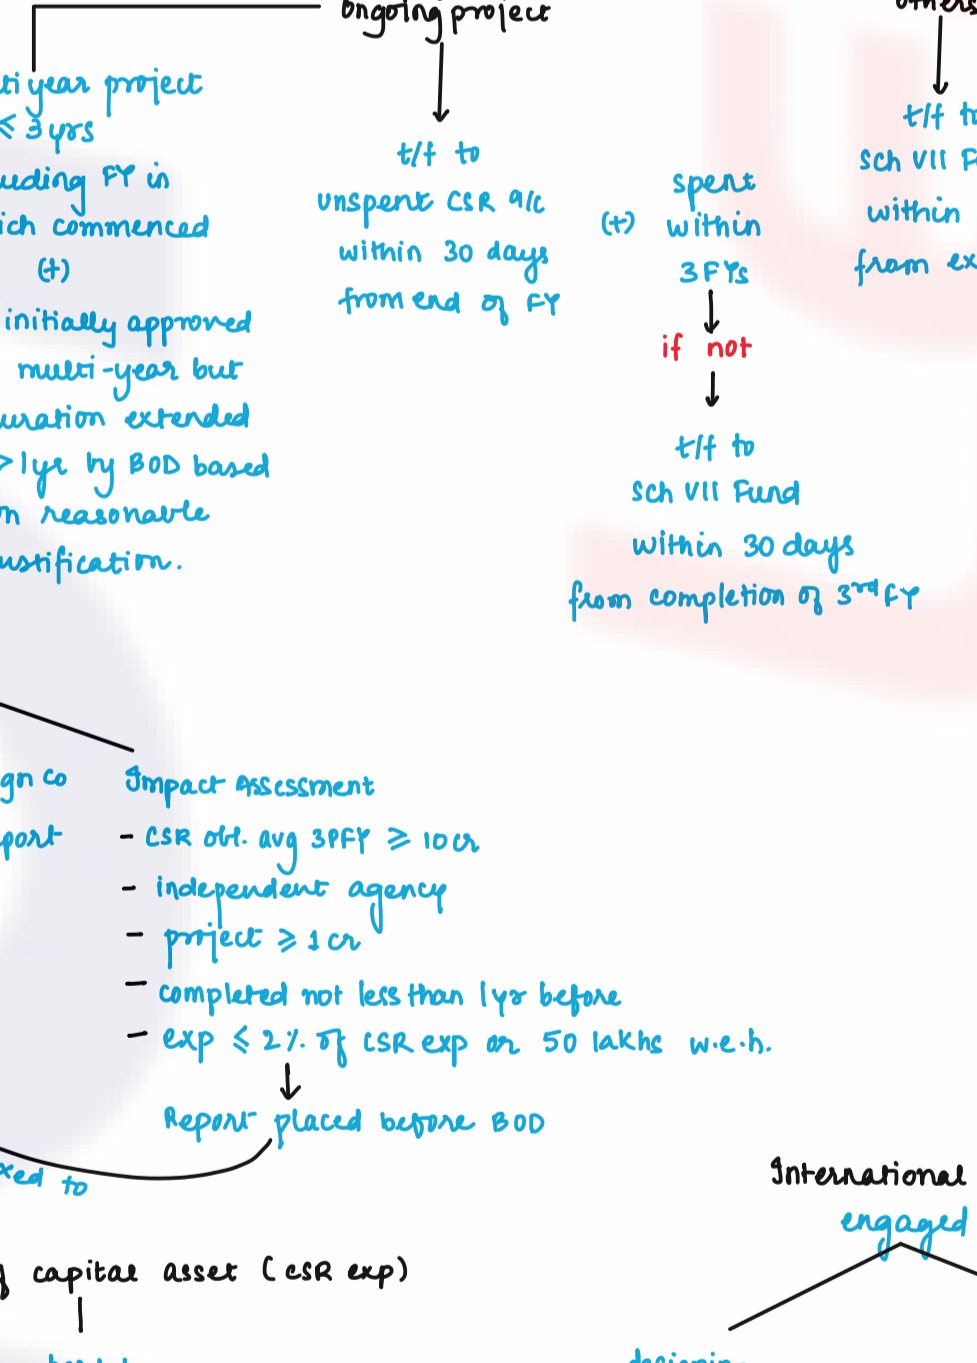 ongoing project
others
ti year project
≤ 3 yrs
uding FY in
ich commenced
(+)
initially approved
multi-year but
uration extended
>1yr by BOD based
n reasonable
ustification.
t/f to
unspent CSR a/c
within 30 days
from end of FY
(+) spent
within
3FYs
if not
t/f to
Sch VII Fund
within 30 days
from completion of 3rd FY
t/f to
Sch VII F
within
from ex
gn co
port
Impact Assessment
- CSR obl. avg 3PFY ≥ 10cr
- independent agency
- project ≥ 1cr
- completed not less than 1yr before
- exp ≤ 2% of CSR exp or 50 lakhs w.e.h.
Report placed before BOD
xed to
capital asset (CSR exp)
International
engaged